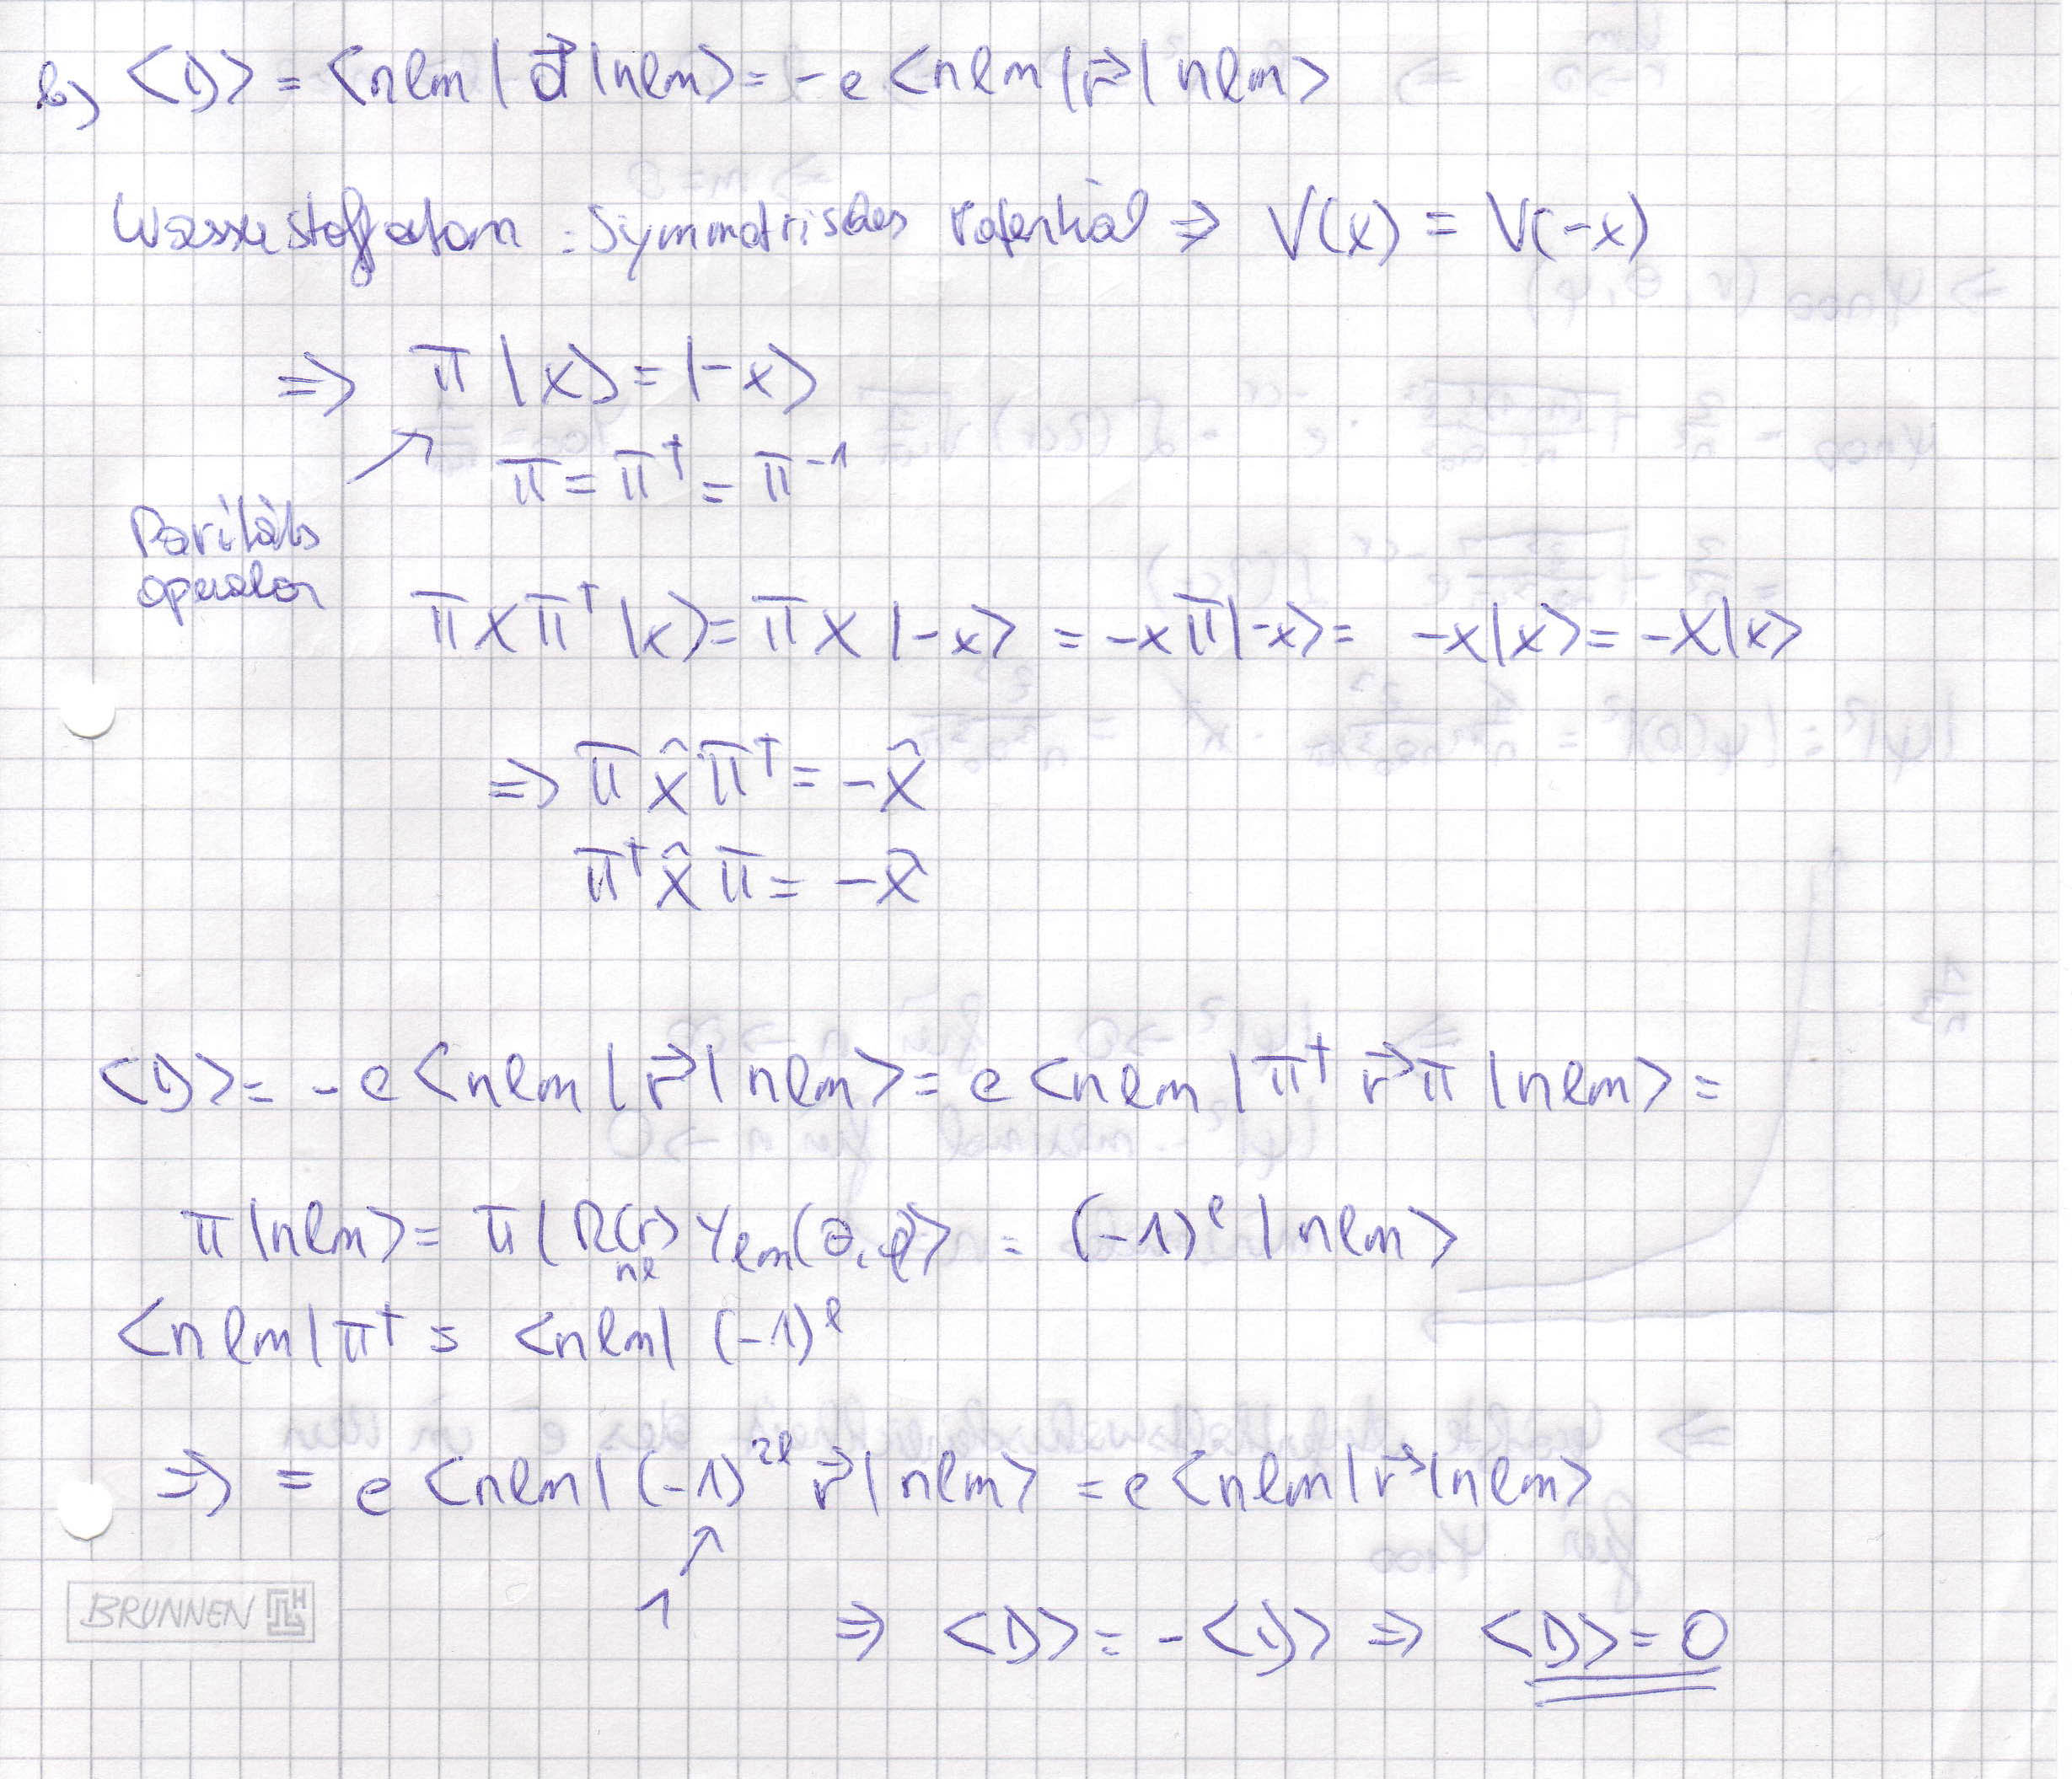 b) <D> = <nlm| d⃗ |nlm> = -e <nlm| r⃗ | nlm>
Wasserstoffatom : Symmetrisches Potential ⇒ V(x) = V(-x)
⇒ π |x> = |-x>
π = π† = π⁻¹
Paritäts
operator
π x π† |x> = π x |-x> = -x π|-x> = -x|x> = -x|x>
⇒ π x̂ π† = -x̂
π† x̂ π = -x̂
<D> = -e <nlm | r⃗ | nlm> = e <nlm | π† r⃗ π |nlm> =
π |nlm> = π | R_nl(r) Y_lm(θ,φ> = (-1)^l | nlm>
<nlm| π† = <nlm| (-1)^l
⇒ = e <nlm| (-1)^2l r⃗ | nlm> = e <nlm| r⃗ |nlm>
1
⇒ <D> = - <D> ⇒ <D> = 0
BRUNNEN